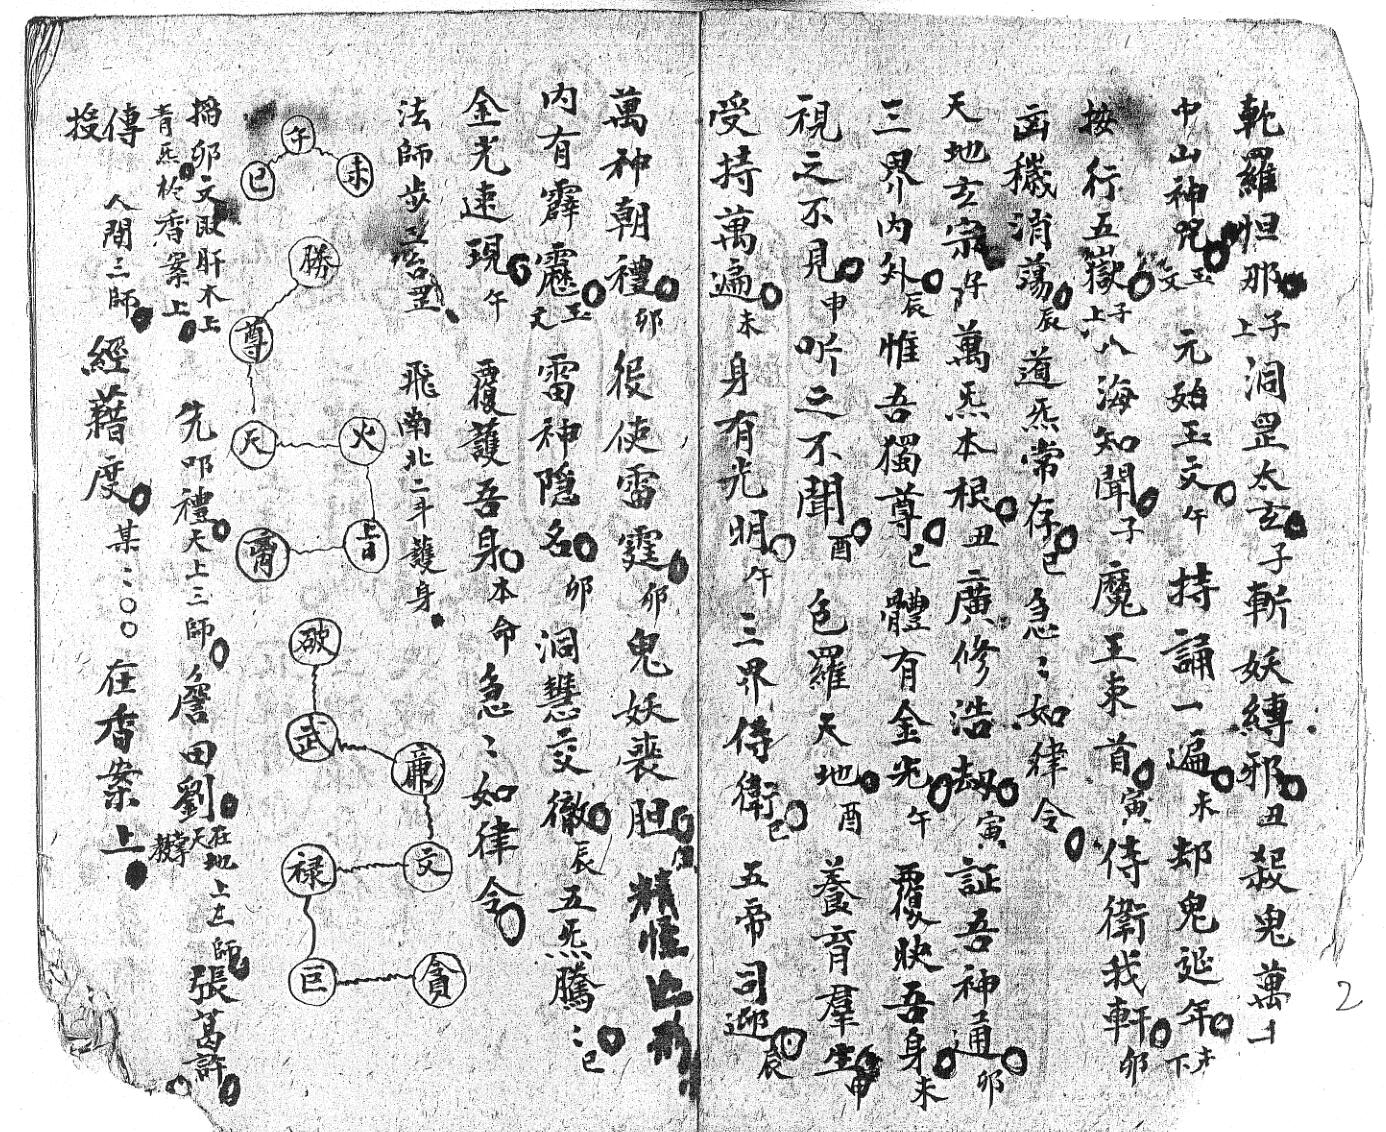 乾羅怛那子上洞罡太玄子斬妖縛邪丑殺鬼萬
中山神咒玉文元始玉文午持誦一遍未却鬼延年未下
按行五嶽子上八海知聞子魔王束首寅侍衛我軒卯
㐫穢消蕩辰道炁常存巳急〻如律令
天地玄宗 萬炁本根丑廣修浩劫寅証吾神通卯
三界內外辰惟吾獨尊巳體有金光午覆映吾身未
視之不見申听之不聞酉色羅天地酉養育羣生申
受持萬遍未身有光明午三界侍衛巳五帝司迎辰
萬神朝禮卯役使雷霆卯鬼妖喪胆 精怪亡形
內有霹靂玉文雷神隱名卯洞慧交徹辰五炁騰〻巳
金光速現午覆護吾身本命急〻如律令
法師步三台罡 飛南北二斗護身
午
未
巳
勝
尊
天
火
宵
破
武
廉
文
祿
巨
貪
搯卯文取肝木上
青炁於香案上
先叩禮天上三師詹田劉在天掌教地上三師張葛許
傳授 人間三師經藉度某〻〇〇在香案上
2